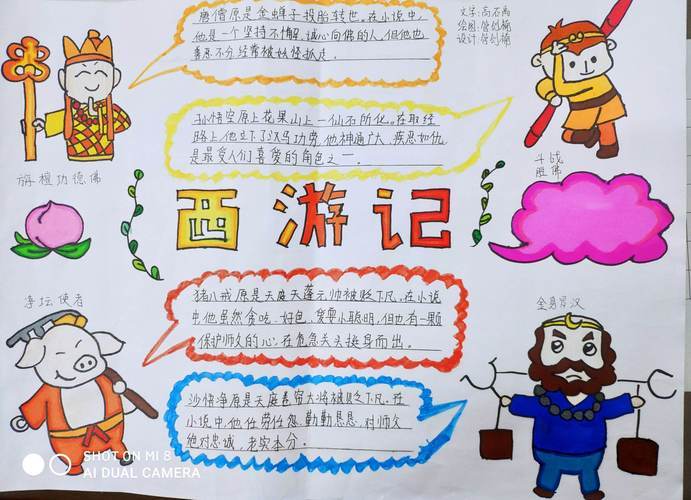 唐僧原是金蝉子投胎转世。在小说中,
他是一个坚持不懈、诚心向佛的人,但他也
善恶不分经常被妖怪抓走.
文字:高石雨
绘图:管剑楠
设计:管剑楠
孙悟空原上花果山上一仙石所化。在取经
路上他立下了汉马功劳,他神通广大,疾恶如仇
是最受人们喜爱的角色之一.
旃檀功德佛
斗战
胜佛
西游记
净坛使者
猪八戒原是天庭天蓬元帅被贬下凡,在小说
中他虽然贪吃、好色、耍耍小聪明,但也有一颗
保护师父的心,在危急关头挺身而出。
金身罗汉
沙悟净原是天庭卷帘大将被贬下凡.在
小说中,他任劳任怨、勤勤恳恳、对师父
绝对忠诚,老实本分.
SHOT ON MI 8
AI DUAL CAMERA